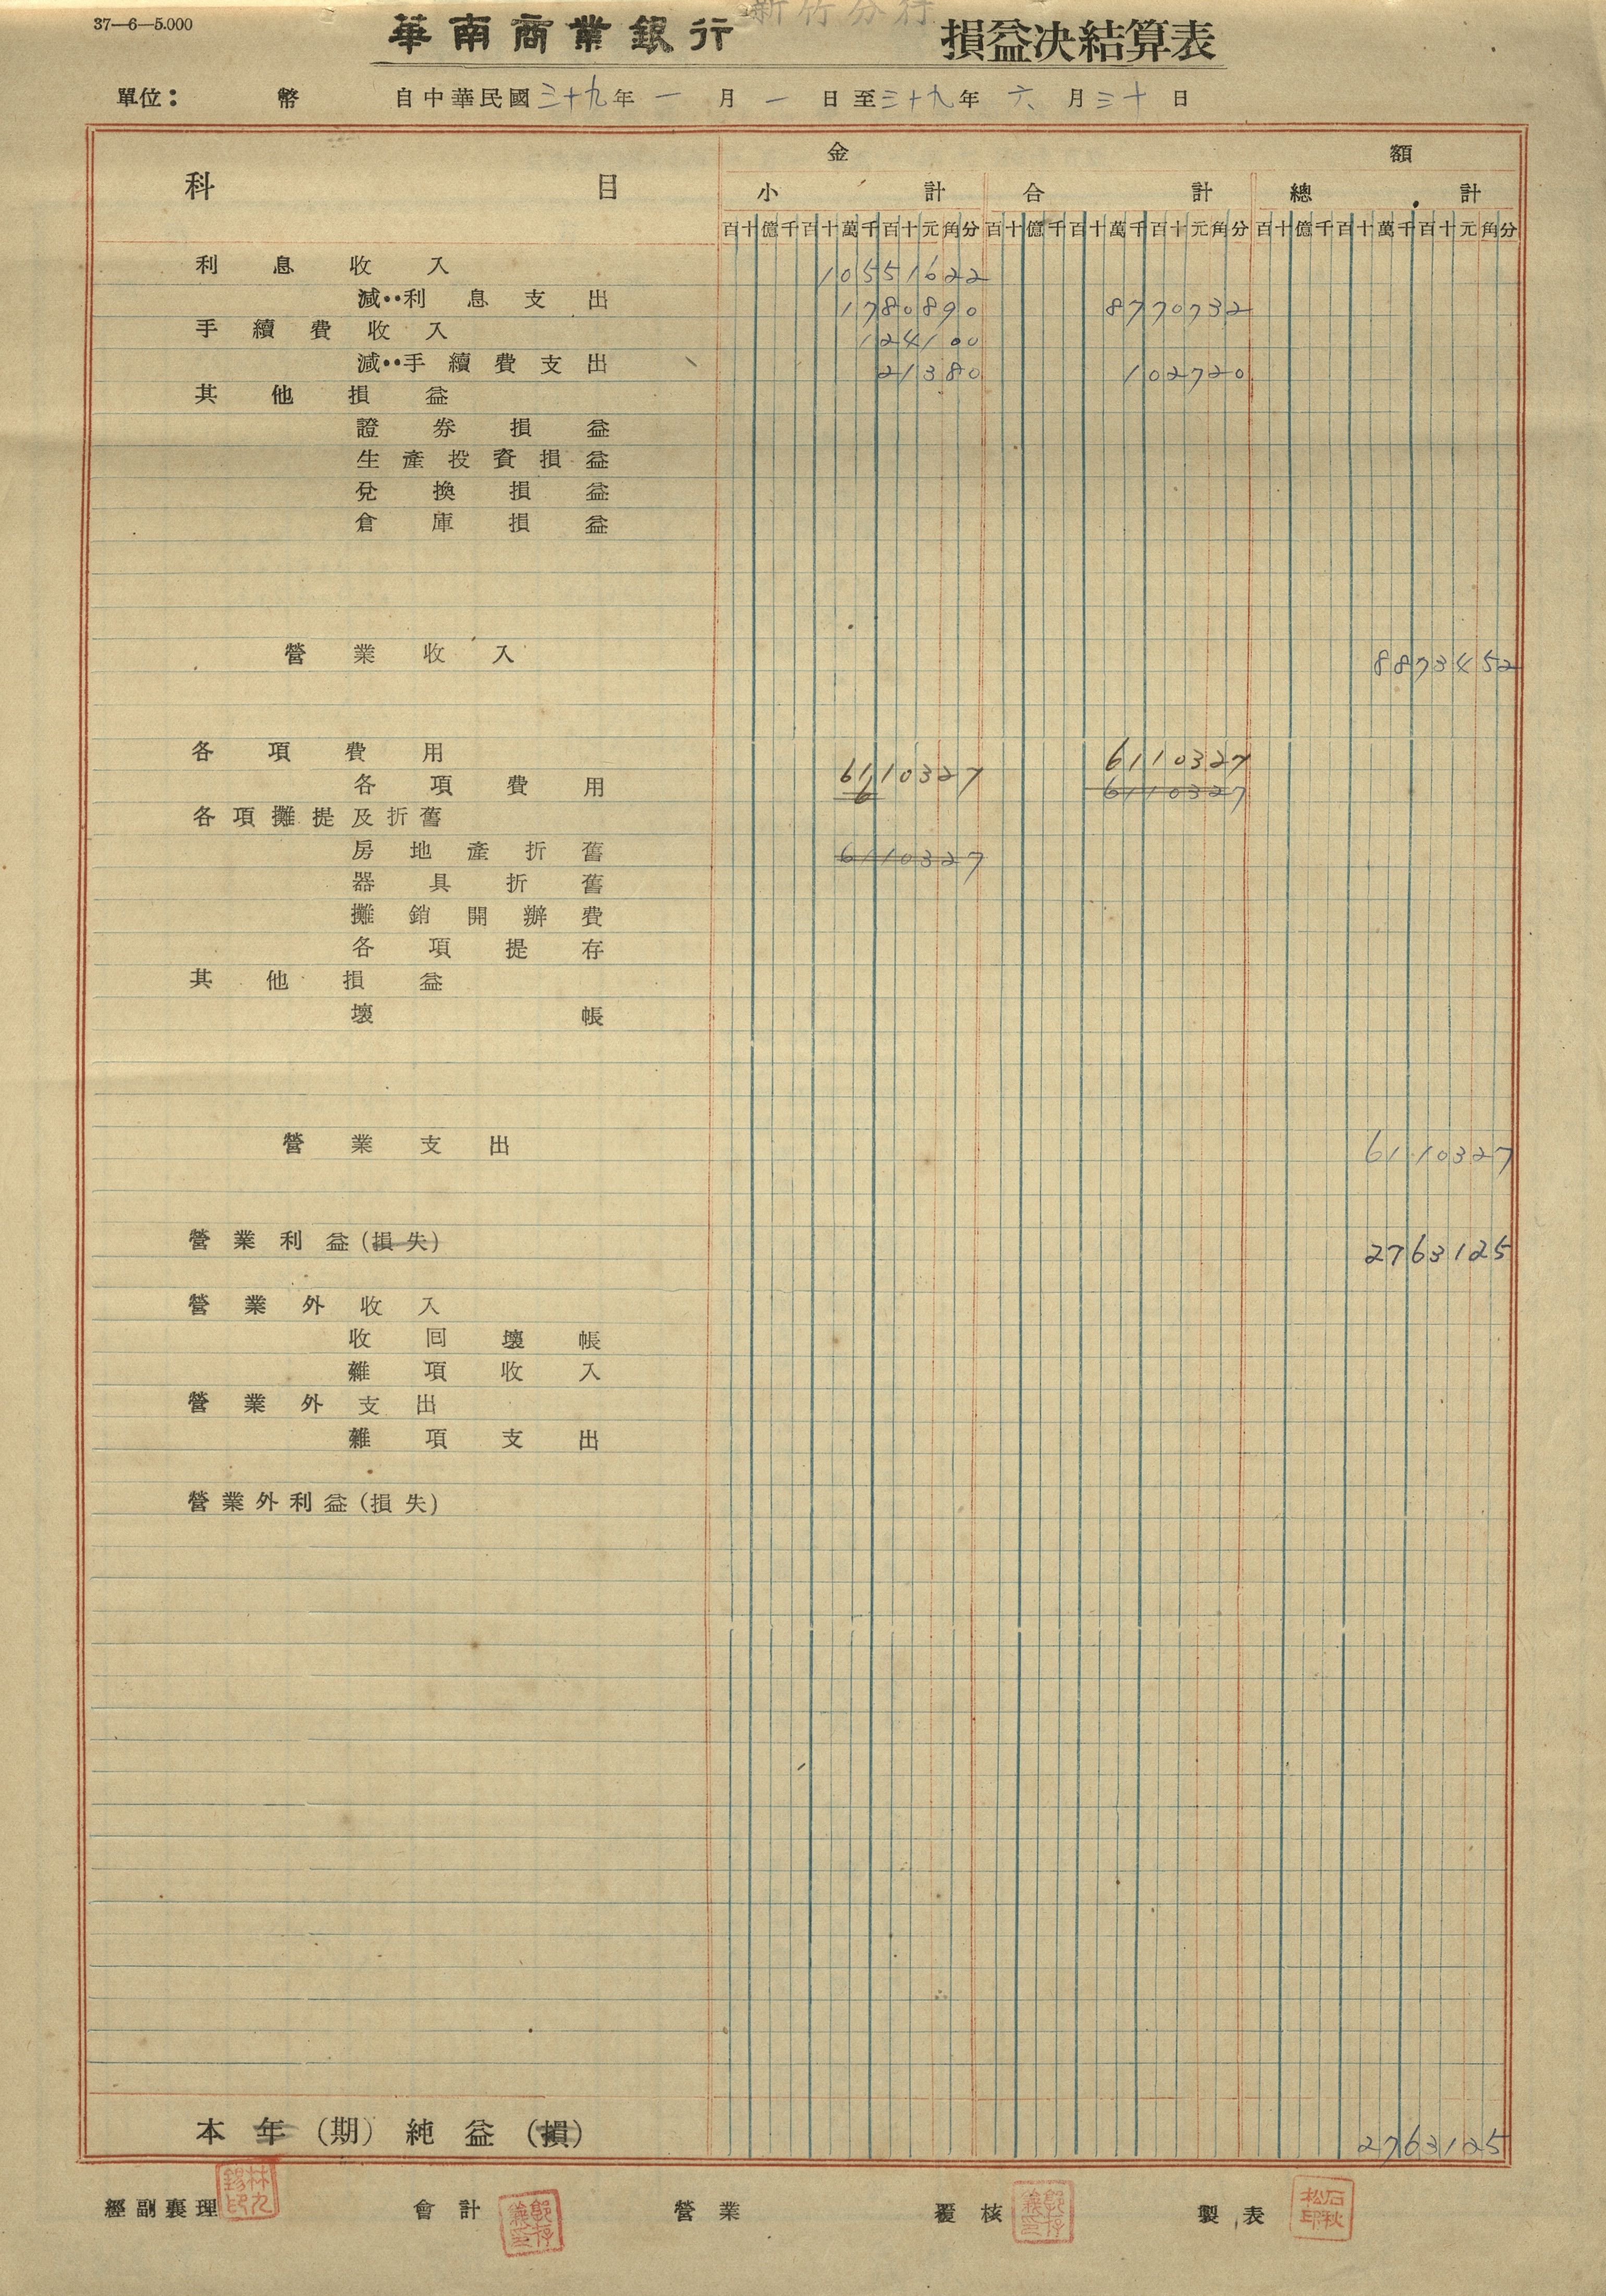 新竹分行
37—6—5.000
華南商業銀行 損益決結算表
單位： 幣 自中華民國三十九年一月一日至三十九年六月三十日
金額
科目
小計 合計 總計
百十億千百十萬千百十元角分 百十億千百十萬千百十元角分 百十億千百十萬千百十元角分
利息收入 10551622
減：利息支出 1780890 8770732
手續費收入 124100
減：手續費支出 21380 102720
其他損益
證券損益
生產投資損益
兌換損益
倉庫損益
營業收入 8873452
各項費用 6110327
各項費用 6110327 6110327
6
各項攤提及折舊
房地產折舊 6110327
器具折舊
攤銷開辦費
各項提存
其他損益
壞帳
營業支出 6110327
營業利益(損失) 2763125
營業外收入
收回壞帳
雜項收入
營業外支出
雜項支出
營業外利益(損失)
本年(期)純益(損) 2763125
經副襄理 林九錫印 會計 營業 覆核 製表 石秋松印